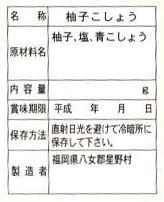 名称 柚子こしょう
原材料名 柚子、塩、青こしょう
内容量 g
賞味期限 平成 年 月 日
保存方法 直射日光を避けて冷暗所に
保存して下さい。
製造者 福岡県八女郡星野村